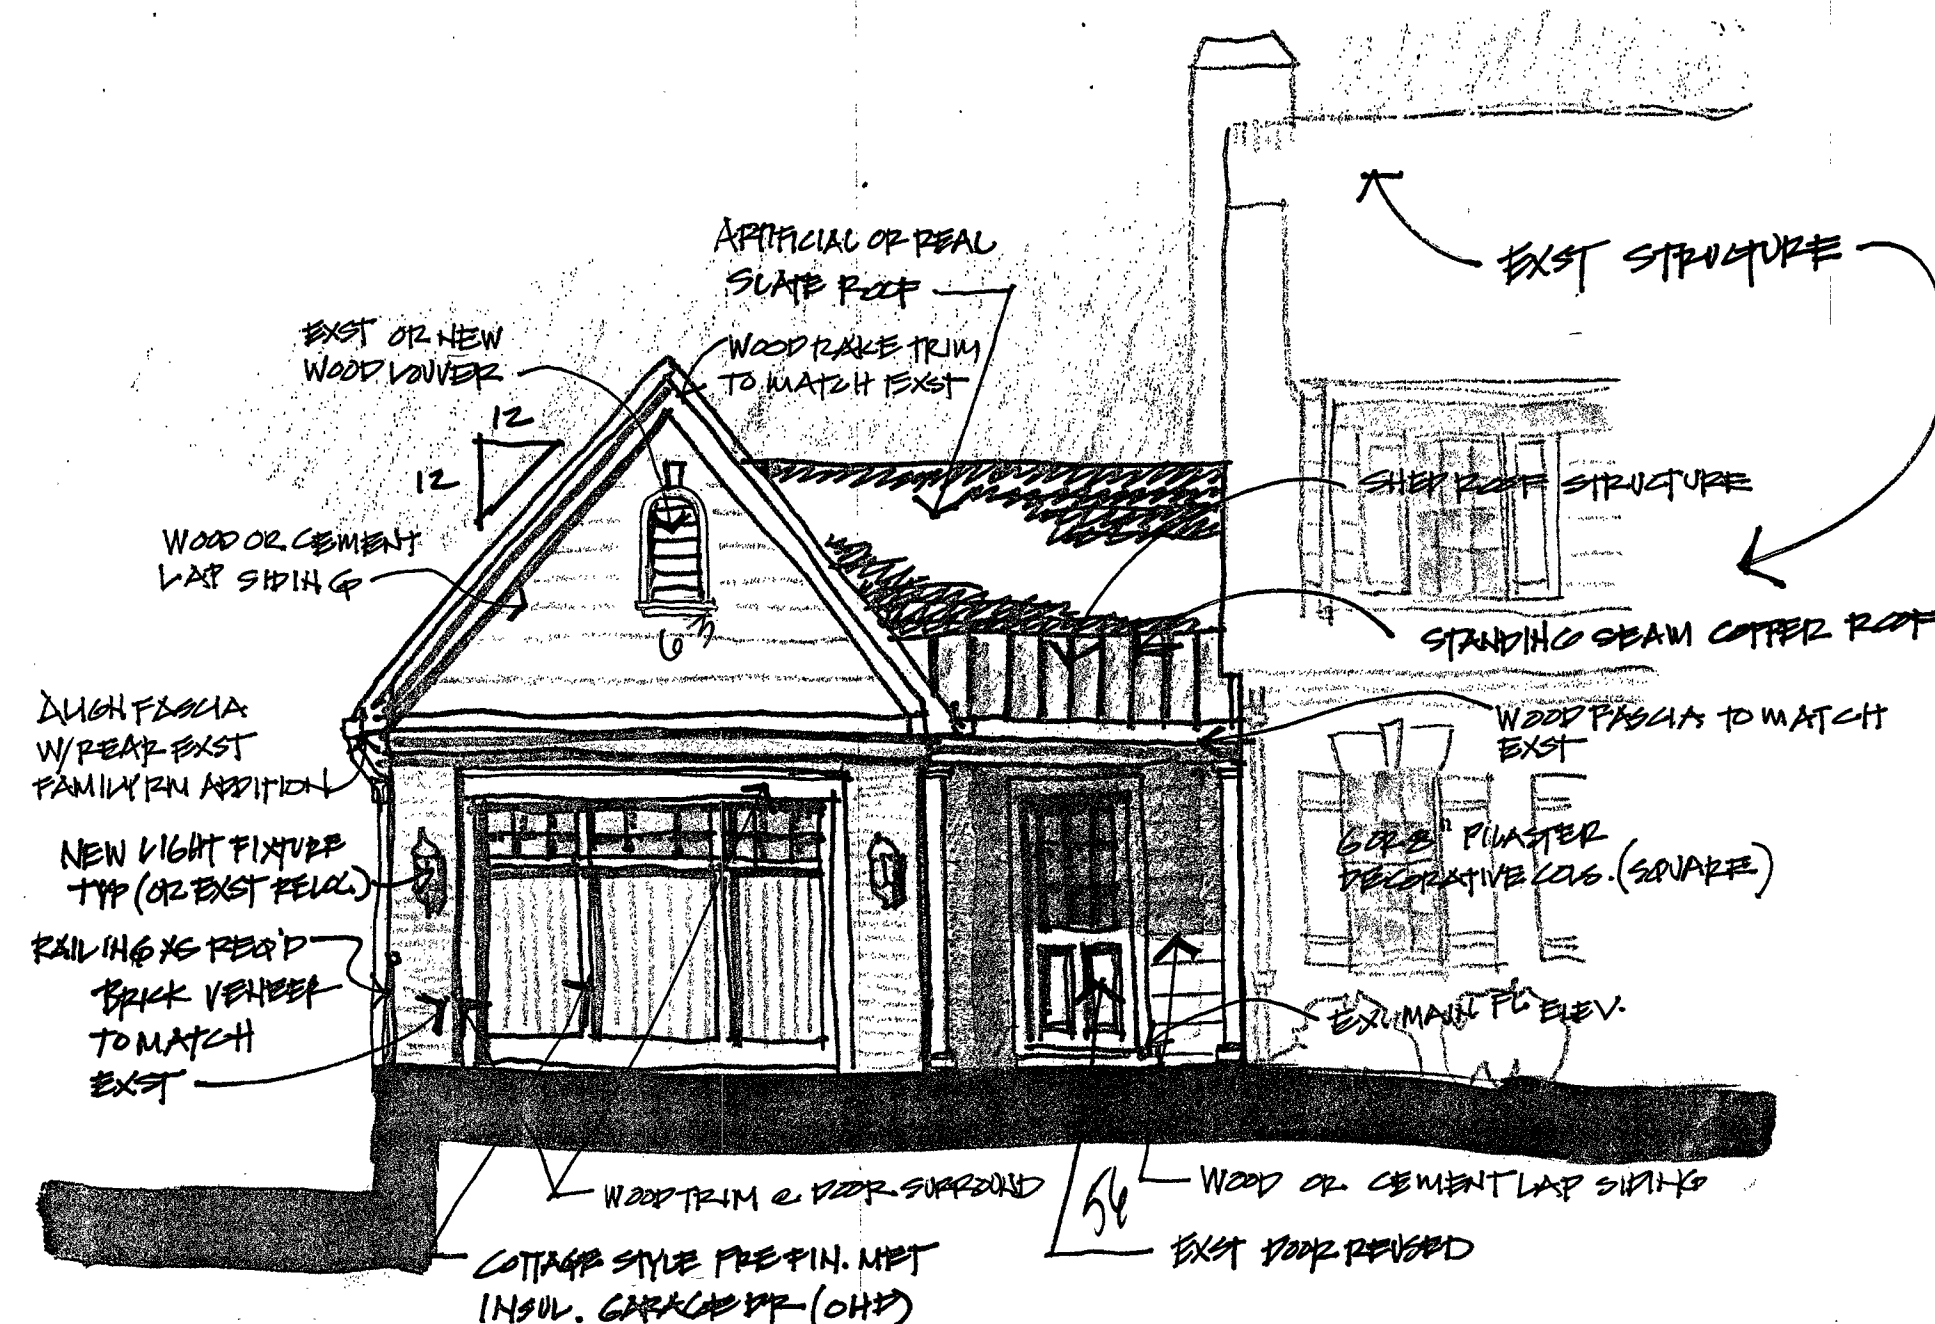 ARTIFICIAL OR REAL
SLATE ROOF
EXST STRUCTURE
EXST OR NEW
WOOD LOUVER
WOOD RAKE TRIM
TO MATCH EXST
12
12
SHED ROOF STRUCTURE
WOOD OR CEMENT
LAP SIDING
STANDING SEAM COPPER ROOF
ALIGN FASCIA
W/REAR EXST
FAMILY RM ADDITION
WOOD FASCIA TO MATCH
EXST
NEW LIGHT FIXTURE
TYP (OR EXST RELOC.)
6 OR 8" PILASTER
DECORATIVE COLS. (SQUARE)
RAILING AS REQ'D
BRICK VENEER
TO MATCH
EXST
EX. MAIN FL ELEV.
WOOD TRIM @ DOOR SURROUND
56
WOOD OR CEMENT LAP SIDING
EXST DOOR REUSED
COTTAGE STYLE PREFIN. MET
INSUL. GARAGE DR (OHD)